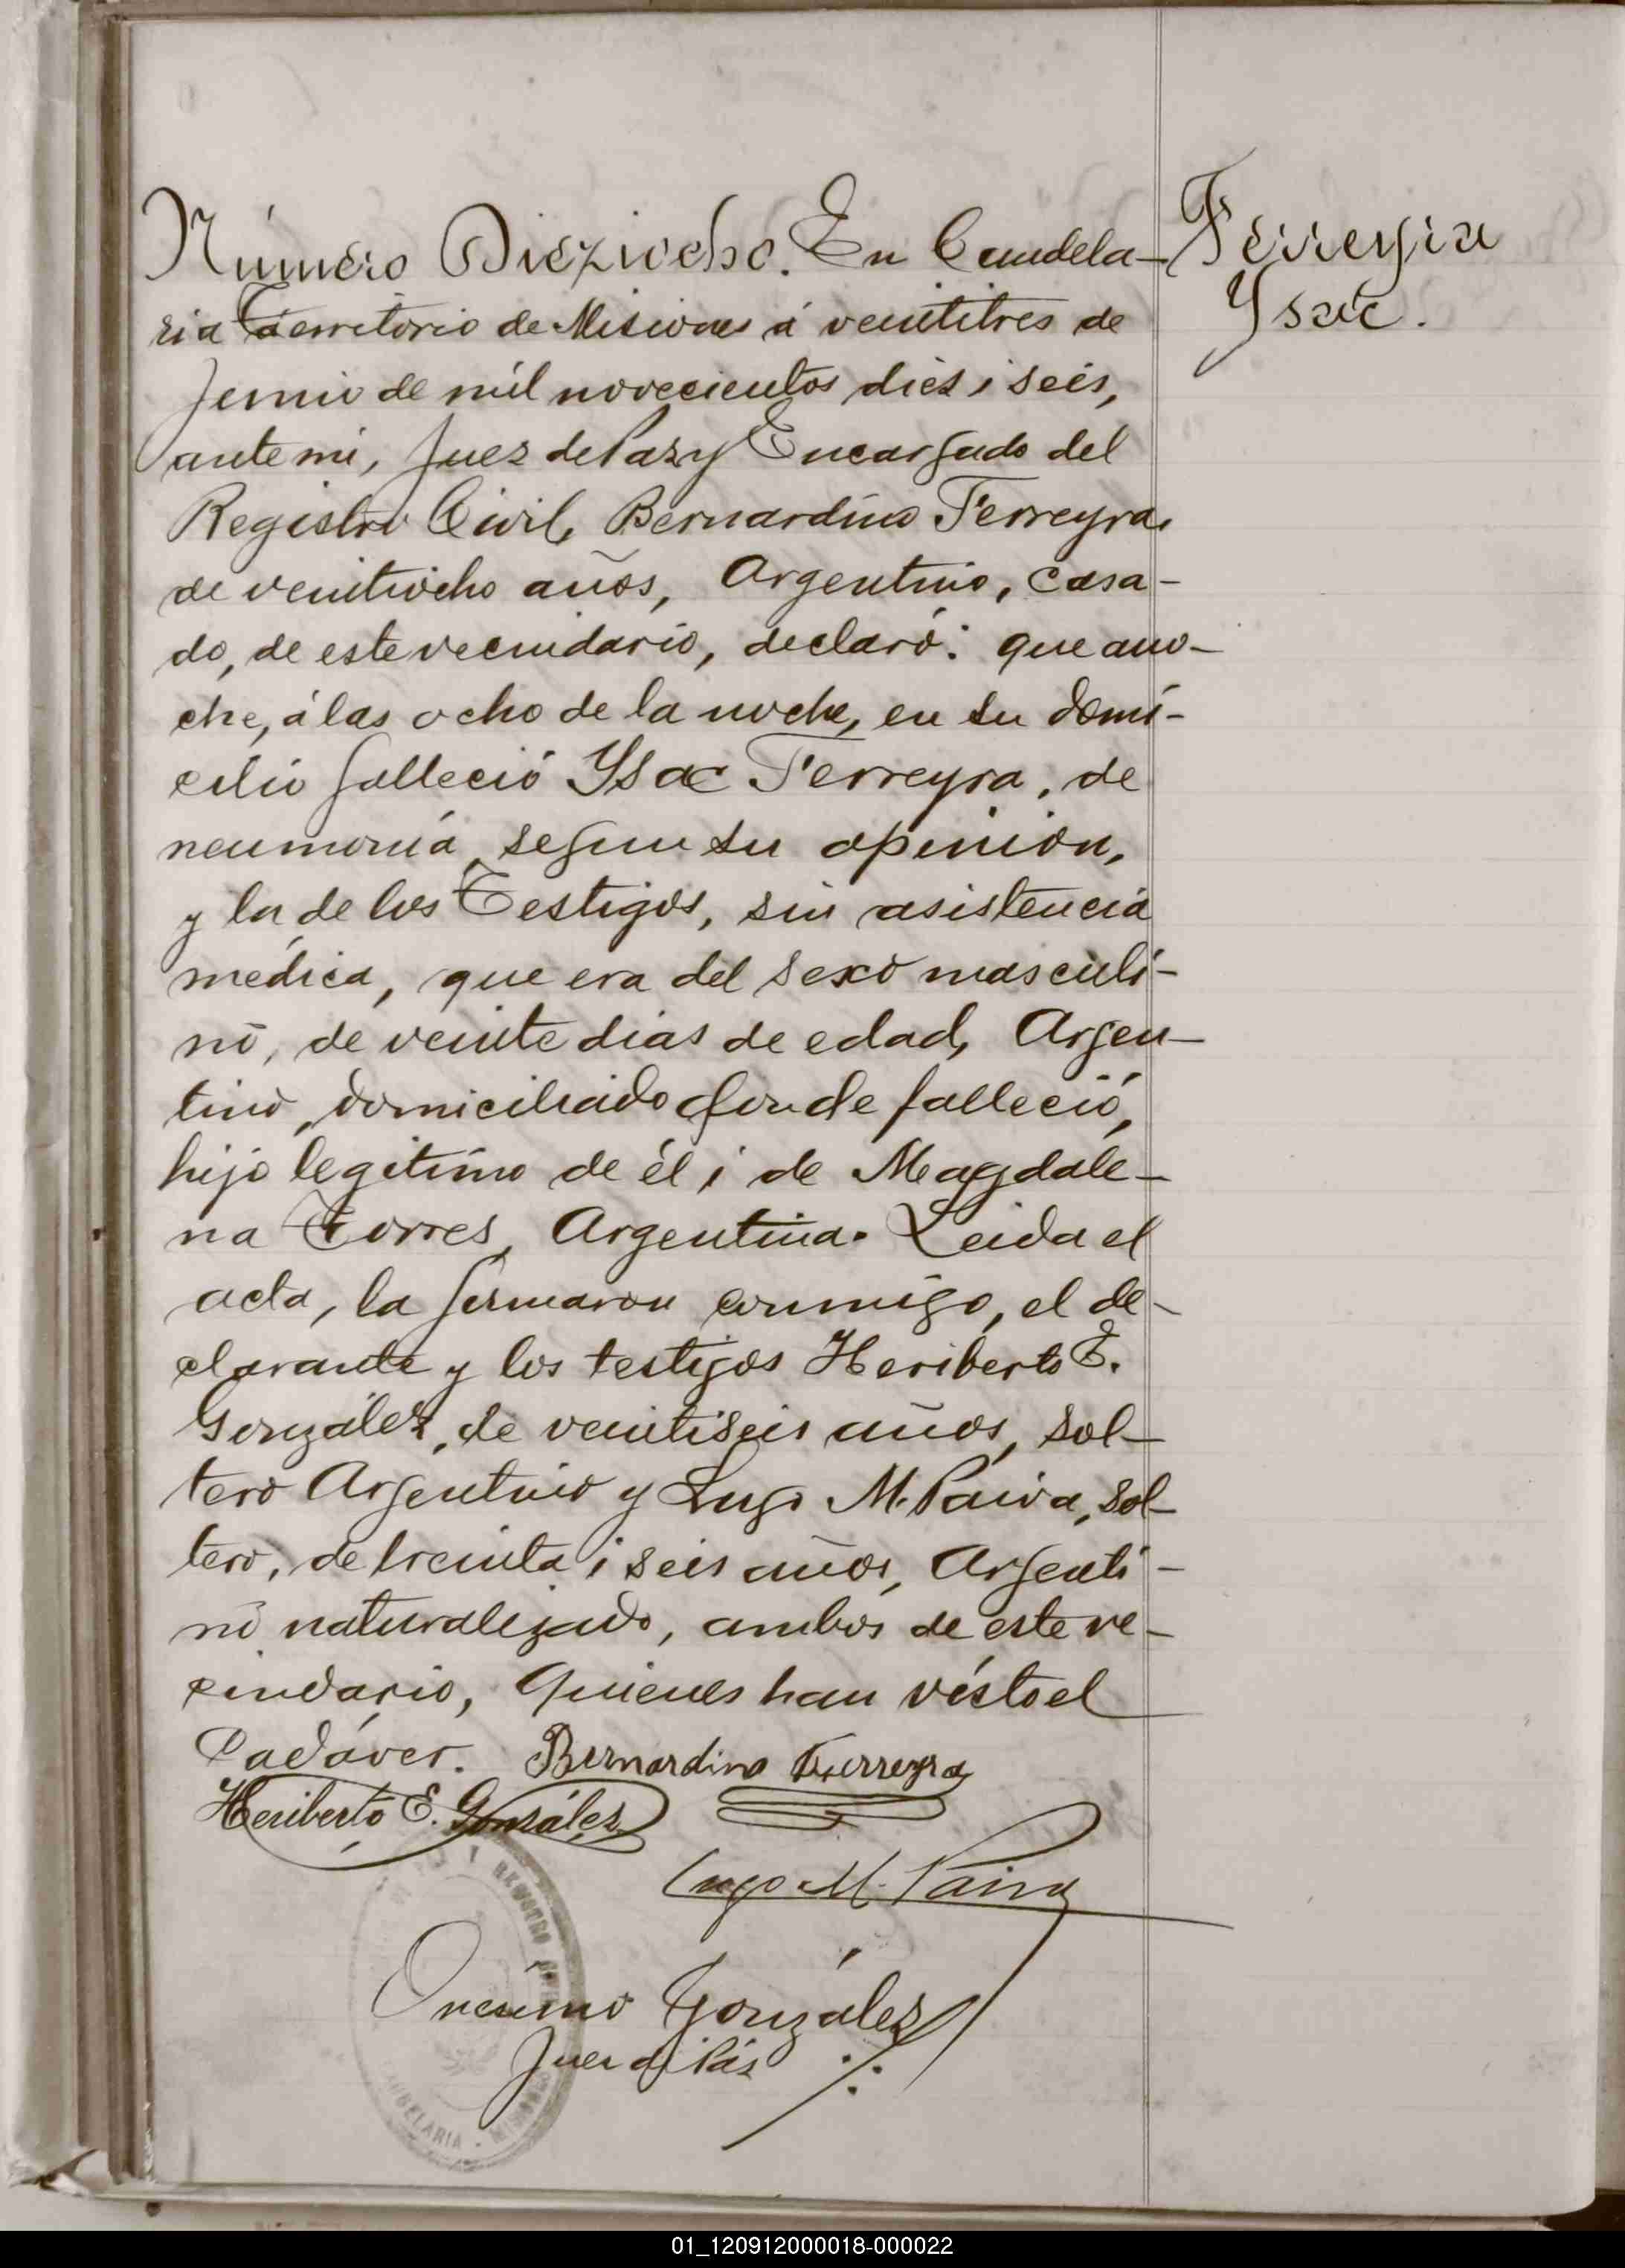 Número Dieziocho. En Candela-
ria Territorio de Misiones á veintitres de
Junio de mil novecientos diez i seis,
ante mi, Juez de Paz y Encargado del
Registro Civil, Bernardino Ferreyra,
de veintiocho años, Argentino, casa-
do, de este vecindario, declaró: que ano-
che, á las ocho de la noche, en su domi-
cilio falleció Ysac Ferreyra, de
neumonía, segun su opinion,
y la de los Testigos, sin asistencia
médica, que era del sexo masculi-
no, de veinte dias de edad, Argen-
tino, domiciliado donde falleció,
hijo legítimo de él i de Magdale-
na Torres, Argentina. Leida el
acta, la firmaron conmigo, el de-
clarante y los testigos Heriberto E.
González, de veintiseis años, sol-
tero Argentino y Lugo M. Paiva, sol-
tero, de treinta i seis años, Argenti-
no naturalizado, ambos de este ve-
cindario, quienes han visto el
Cadáver. Bernardino Ferreyra
Heriberto E. González
Lugo M. Paiva
Onésimo González
Juez de Páz
Ferreyra
Ysac.
REGISTRO
CANDELARIA
01_120912000018-000022